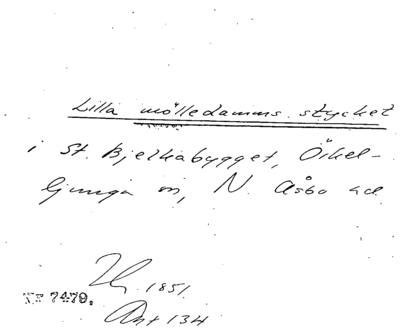 Lilla mölledamms. stycket
i St. Bjelkabygget, Örkel-
ljunga sn, N. Åsbo hd.
1851.
7479.
Ant 134